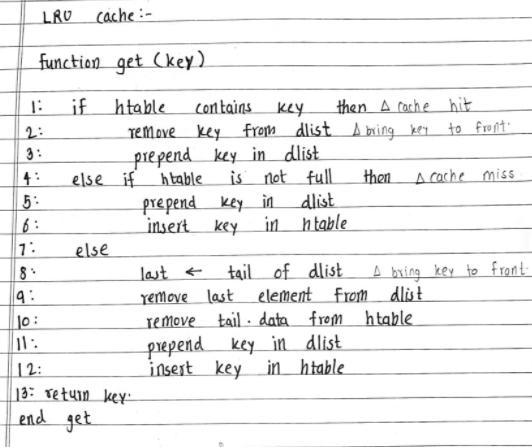 LRU cache :-
function get (key)
1: if htable contains key then Δ cache hit
2: remove key from dlist Δ bring key to front.
3: prepend key in dlist
4: else if htable is not full then Δ cache miss
5: prepend key in dlist
6: insert key in htable
7: else
8: last ← tail of dlist Δ bring key to front.
9: remove last element from dlist
10: remove tail.data from htable
11: prepend key in dlist
12: insert key in htable
13: return key.
end get